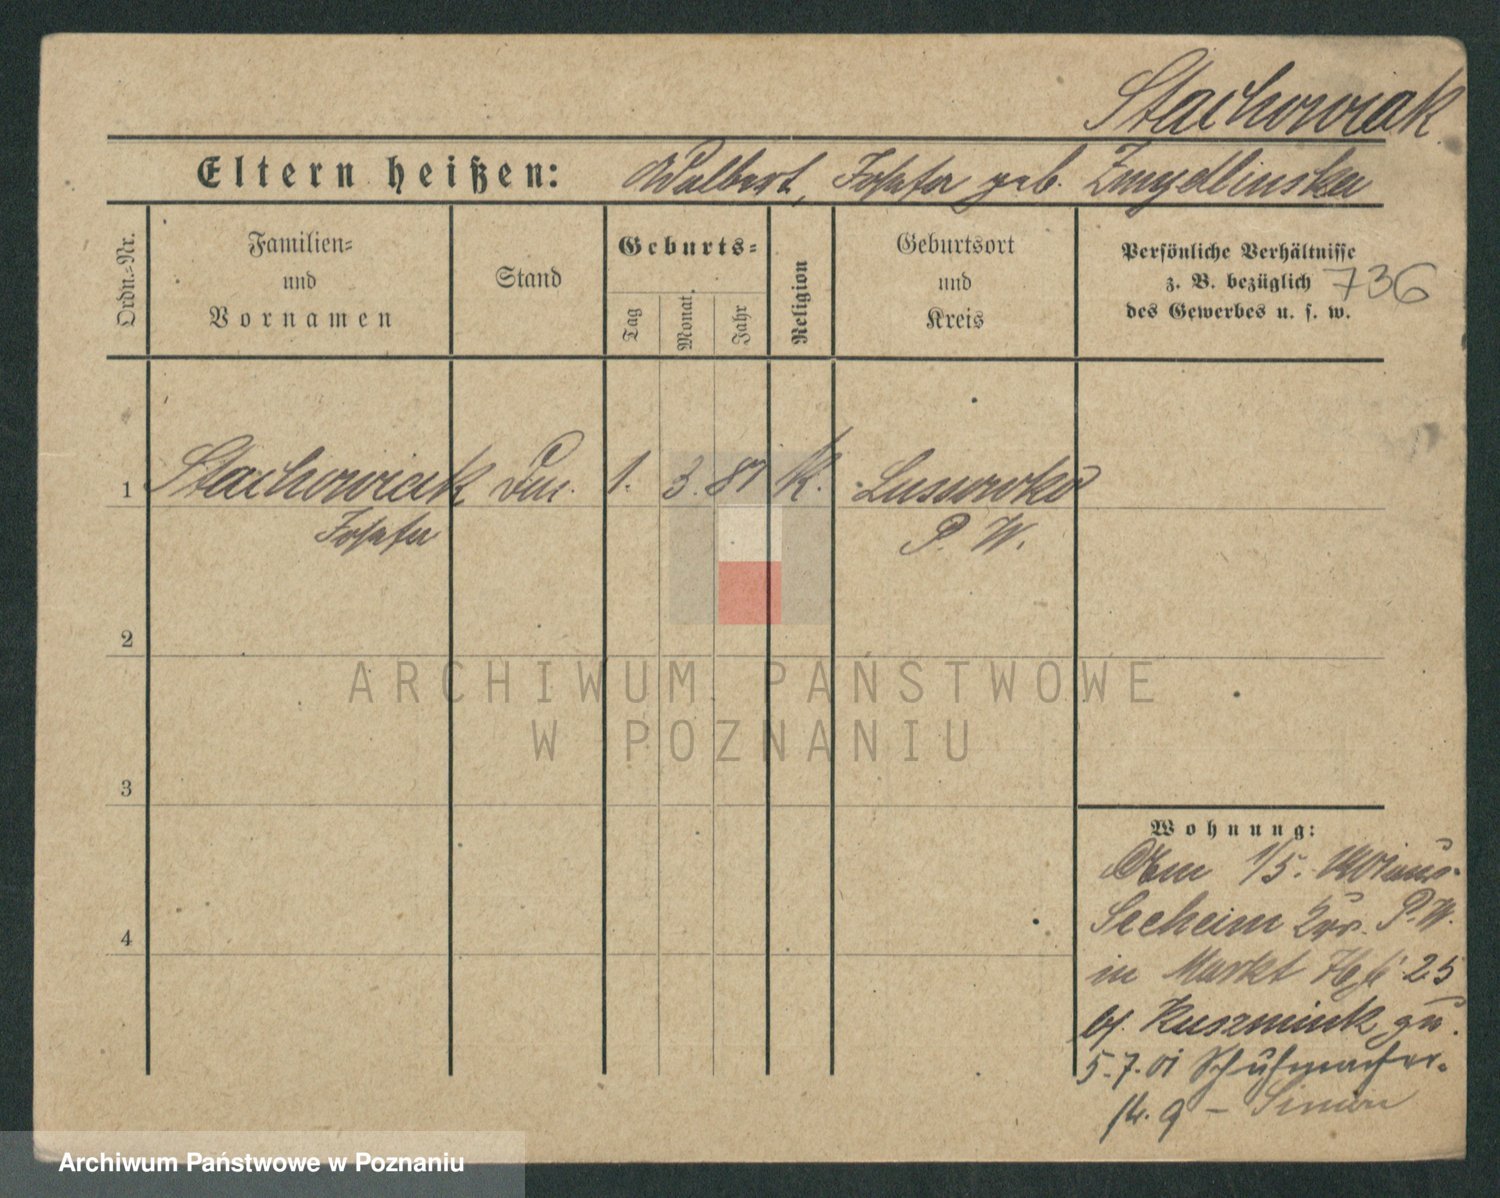 Stachowiak
Eltern heißen: Adalbert, Josefa geb. Zmydlinska
Ordn.-Nr.
Familien-
und
Vornamen
Stand
Geburts-
Tag
Monat
Jahr
Religion
Geburtsort
und
Kreis
Persönliche Verhältnisse
z. B. bezüglich
des Gewerbes u. s. w.
736
1 Stachowiak 1. 3. 87 K. Lusowko
Josefa P. W.
2
3
4
Wohnung:
Am 1/5. 1901 aus
Seeheim P. W.
in Markt 25
bei zu.
5.7.01 Schuhmacher-
14. 9 - Simon
ARCHIWUM PAŃSTWOWE
W POZNANIU
Archiwum Państwowe w Poznaniu